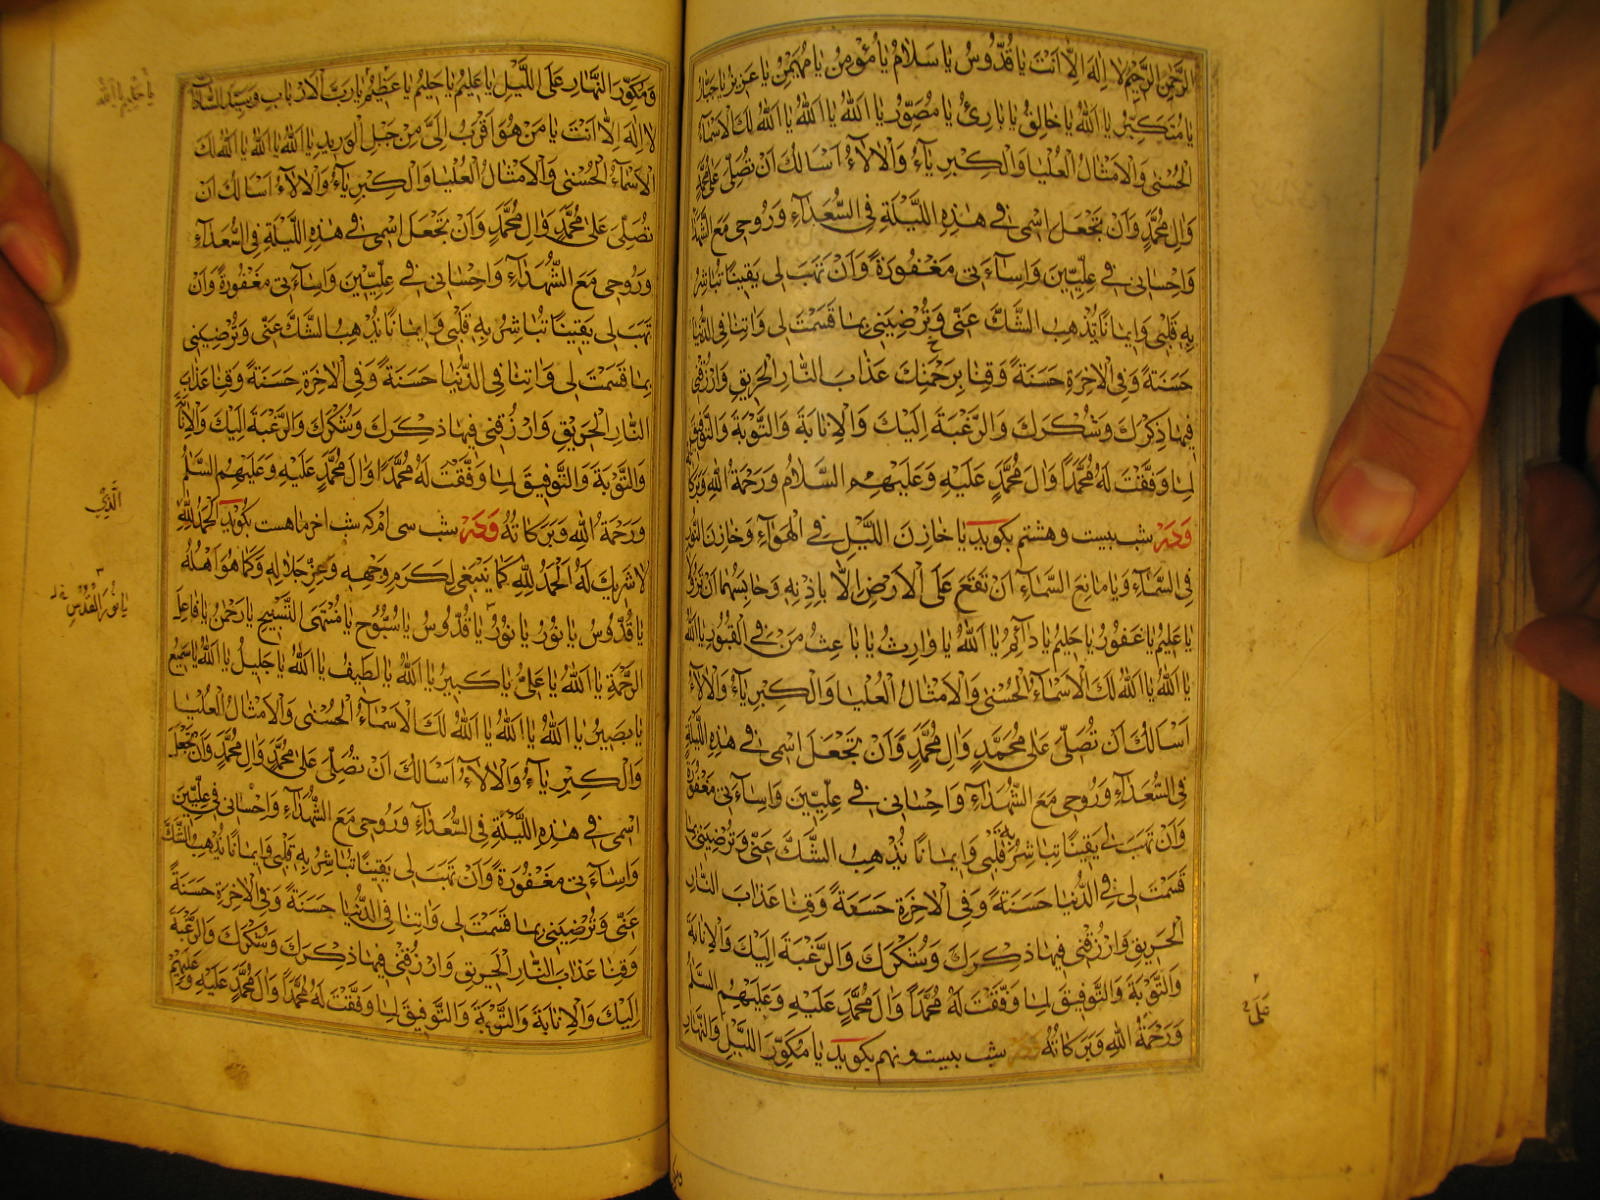 الرَّحْمٰنُ الرَّحِيْمُ لا اِلٰهَ اِلّا اَنْتَ يا قُدُّوسُ يا سَلامُ يا مُؤْمِنُ يا مُهَيْمِنُ يا عَزِيْزُ يا جَبّارُ
يا مُتَكَبِّرُ يا اَللّٰهُ يا خالِقُ يا بارِئُ يا مُصَوِّرُ يا اَللّٰهُ يا اَللّٰهُ يا اَللّٰهُ لَكَ الْاَسْمآءُ
الْحُسْنٰى وَالْاَمْثالُ الْعُلْيا وَالْكِبْرِيآءُ وَالْالاۤءُ اَسْاَلُكَ اَنْ تُصَلِّىَ عَلٰى مُحَمَّدٍ
وَالِ مُحَمَّدٍ وَاَنْ تَجْعَلَ اسْمِى فِى هٰذِهِ اللَّيْلَةِ فِى السُّعَدآءِ وَرُوحِى مَعَ الشُّهَدآءِ
وَاِحْسانِى فِى عِلِّيِّينَ وَاِسآءَتِى مَغْفُورَةً وَاَنْ تَهَبَ لِى يَقِينًا تُباشِرُ
بِهِ قَلْبِى وَاِيمانًا يُذْهِبُ الشَّكَّ عَنِّى وَتُرْضِيَنِى بِما قَسَمْتَ لِى وَاتِنا فِى الدُّنْيا
حَسَنَةً وَفِى الْاٰخِرَةِ حَسَنَةً وَقِنا بِرَحْمَتِكَ عَذابَ النّارِ الْحَرِيقِ وَارْزُقْنِى
فِيها ذِكْرَكَ وَشُكْرَكَ وَالرَّغْبَةَ اِلَيْكَ وَالْاِنابَةَ وَالتَّوْبَةَ وَالتَّوْفِيقَ
لِما وَفَّقْتَ لَهُ مُحَمَّدًا وَالَ مُحَمَّدٍ عَلَيْهِ وَعَلَيْهِمُ السَّلامُ وَرَحْمَةُ اللّٰهِ وَبَرَكاتُهُ
وَدَرْ شب بيست وهشتم بكويد يا خازِنَ اللَّيْلِ فِى الْهَوآءِ وَخازِنَ النُّورِ
فِى السَّمآءِ وَيا مانِعَ السَّمآءِ اَنْ تَقَعَ عَلَى الْاَرْضِ اِلّا بِاِذْنِهِ وَحابِسَهُما اَنْ تَزُولا
يا عَلِيمُ يا غَفُورُ يا حَلِيمُ يا دآئِمُ يا اَللّٰهُ يا وارِثُ يا باعِثُ مَنْ فِى الْقُبُورِ يا اَللّٰهُ
يا اَللّٰهُ يا اَللّٰهُ لَكَ الْاَسْمآءُ الْحُسْنٰى وَالْاَمْثالُ الْعُلْيا وَالْكِبْرِيآءُ وَالْالاۤءُ
اَسْاَلُكَ اَنْ تُصَلِّىَ عَلٰى مُحَمَّدٍ وَالِ مُحَمَّدٍ وَاَنْ تَجْعَلَ اسْمِى فِى هٰذِهِ اللَّيْلَةِ
فِى السُّعَدآءِ وَرُوحِى مَعَ الشُّهَدآءِ وَاِحْسانِى فِى عِلِّيِّينَ وَاِسآءَتِى مَغْفُورَةً
وَاَنْ تَهَبَ لِى يَقِينًا تُباشِرُ بِهِ قَلْبِى وَاِيمانًا يُذْهِبُ الشَّكَّ عَنِّى وَتُرْضِيَنِى بِما
قَسَمْتَ لِى فِى الدُّنْيا حَسَنَةً وَفِى الْاٰخِرَةِ حَسَنَةً وَقِنا عَذابَ النّارِ
الْحَرِيقِ وَارْزُقْنِى فِيها ذِكْرَكَ وَشُكْرَكَ وَالرَّغْبَةَ اِلَيْكَ وَالْاِنابَةَ
وَالتَّوْبَةَ وَالتَّوْفِيقَ لِما وَفَّقْتَ لَهُ مُحَمَّدًا وَالَ مُحَمَّدٍ عَلَيْهِ وَعَلَيْهِمُ السَّلامُ
وَرَحْمَةُ اللّٰهِ وَبَرَكاتُهُ وَدَرْ شب بيست ونهم بكويد يا مُكَوِّرَ اللَّيْلِ وَالنَّهارِ
عَلِىُّ
وَمُكَوِّرَ النَّهارِ عَلَى اللَّيْلِ يا عَلِيمُ يا حَلِيمُ يا عَظِيمُ يا رَبَّ الْاَرْبابِ وَسَيِّدَ السّاداتِ
لا اِلٰهَ اِلّا اَنْتَ يا مَنْ هُوَ اَقْرَبُ اِلَىَّ مِنْ حَبْلِ الْوَرِيدِ يا اَللّٰهُ يا اَللّٰهُ يا اَللّٰهُ لَكَ
الْاَسْمآءُ الْحُسْنٰى وَالْاَمْثالُ الْعُلْيا وَالْكِبْرِيآءُ وَالْالاۤءُ اَسْاَلُكَ اَنْ
تُصَلِّىَ عَلٰى مُحَمَّدٍ وَالِ مُحَمَّدٍ وَاَنْ تَجْعَلَ اسْمِى فِى هٰذِهِ اللَّيْلَةِ فِى السُّعَدآءِ
وَرُوحِى مَعَ الشُّهَدآءِ وَاِحْسانِى فِى عِلِّيِّينَ وَاِسآءَتِى مَغْفُورَةً وَاَنْ
تَهَبَ لِى يَقِينًا تُباشِرُ بِهِ قَلْبِى وَاِيمانًا يُذْهِبُ الشَّكَّ عَنِّى وَتُرْضِيَنِى
بِما قَسَمْتَ لِى وَاتِنا فِى الدُّنْيا حَسَنَةً وَفِى الْاٰخِرَةِ حَسَنَةً وَقِنا عَذابَ
النّارِ الْحَرِيقِ وَارْزُقْنِى فِيها ذِكْرَكَ وَشُكْرَكَ وَالرَّغْبَةَ اِلَيْكَ وَالْاِنابَةَ
وَالتَّوْبَةَ وَالتَّوْفِيقَ لِما وَفَّقْتَ لَهُ مُحَمَّدًا وَالَ مُحَمَّدٍ عَلَيْهِ وَعَلَيْهِمُ السَّلامُ
وَرَحْمَةُ اللّٰهِ وَبَرَكاتُهُ وَدَرْ شب سى ام كه شب اخر ماهست بكويد اَلْحَمْدُ لِلّٰهِ
لا شَرِيكَ لَهُ اَلْحَمْدُ لِلّٰهِ كَما يَنْبَغِى لِكَرَمِ وَجْهِهِ وَعِزِّ جَلالِهِ وَكَما هُوَ اَهْلُهُ
يا قُدُّوسُ يا نُورُ يا نُورُ يا قُدُّوسُ يا سُبُّوحُ يا مُنْتَهَى التَّسْبِيحِ يا رَحْمٰنُ يا فاعِلَ
الرَّحْمَةِ يا اَللّٰهُ يا عَلِىُّ يا كَبِيرُ يا اَللّٰهُ يا لَطِيفُ يا اَللّٰهُ يا جَلِيلُ يا اَللّٰهُ يا سَمِيعُ
يا بَصِيرُ يا اَللّٰهُ يا اَللّٰهُ يا اَللّٰهُ لَكَ الْاَسْمآءُ الْحُسْنٰى وَالْاَمْثالُ الْعُلْيا
وَالْكِبْرِيآءُ وَالْالاۤءُ اَسْاَلُكَ اَنْ تُصَلِّىَ عَلٰى مُحَمَّدٍ وَالِ مُحَمَّدٍ وَاَنْ تَجْعَلَ
اسْمِى فِى هٰذِهِ اللَّيْلَةِ فِى السُّعَدآءِ وَرُوحِى مَعَ الشُّهَدآءِ وَاِحْسانِى فِى عِلِّيِّينَ
وَاِسآءَتِى مَغْفُورَةً وَاَنْ تَهَبَ لِى يَقِينًا تُباشِرُ بِهِ قَلْبِى وَاِيمانًا يُذْهِبُ الشَّكَّ
عَنِّى وَتُرْضِيَنِى بِما قَسَمْتَ لِى وَاتِنا فِى الدُّنْيا حَسَنَةً وَفِى الْاٰخِرَةِ حَسَنَةً
وَقِنا عَذابَ النّارِ الْحَرِيقِ وَارْزُقْنِى فِيها ذِكْرَكَ وَشُكْرَكَ وَالرَّغْبَةَ
اِلَيْكَ وَالْاِنابَةَ وَالتَّوْبَةَ وَالتَّوْفِيقَ لِما وَفَّقْتَ لَهُ مُحَمَّدًا وَالَ مُحَمَّدٍ عَلَيْهِ وَعَلَيْهِمْ
الَّذِى
يا نُورَ الْقُدُسِ